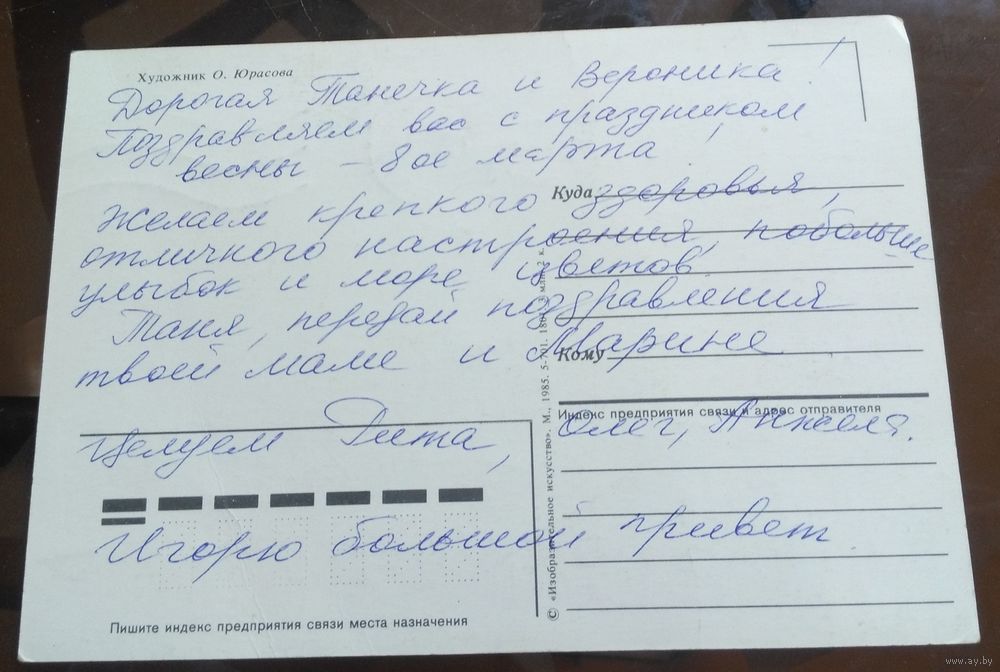 Художник О. Юрасова
Дорогая Танечка и Вероника!
Поздравляем вас с праздником
весны – 8ое марта!
Желаем крепкого здоровья,
отличного настроения, побольше
улыбок и море цветов.
Таня, передай поздравления
твоей маме и Марине.
Куда
Кому
Индекс предприятия связи и адрес отправителя
Целуем Рита,
Олег, Анжела.
Игорю большой привет.
Пишите индекс предприятия связи места назначения
© «Изобразительное искусство». М., 1985. 5-701.
www.ay.by